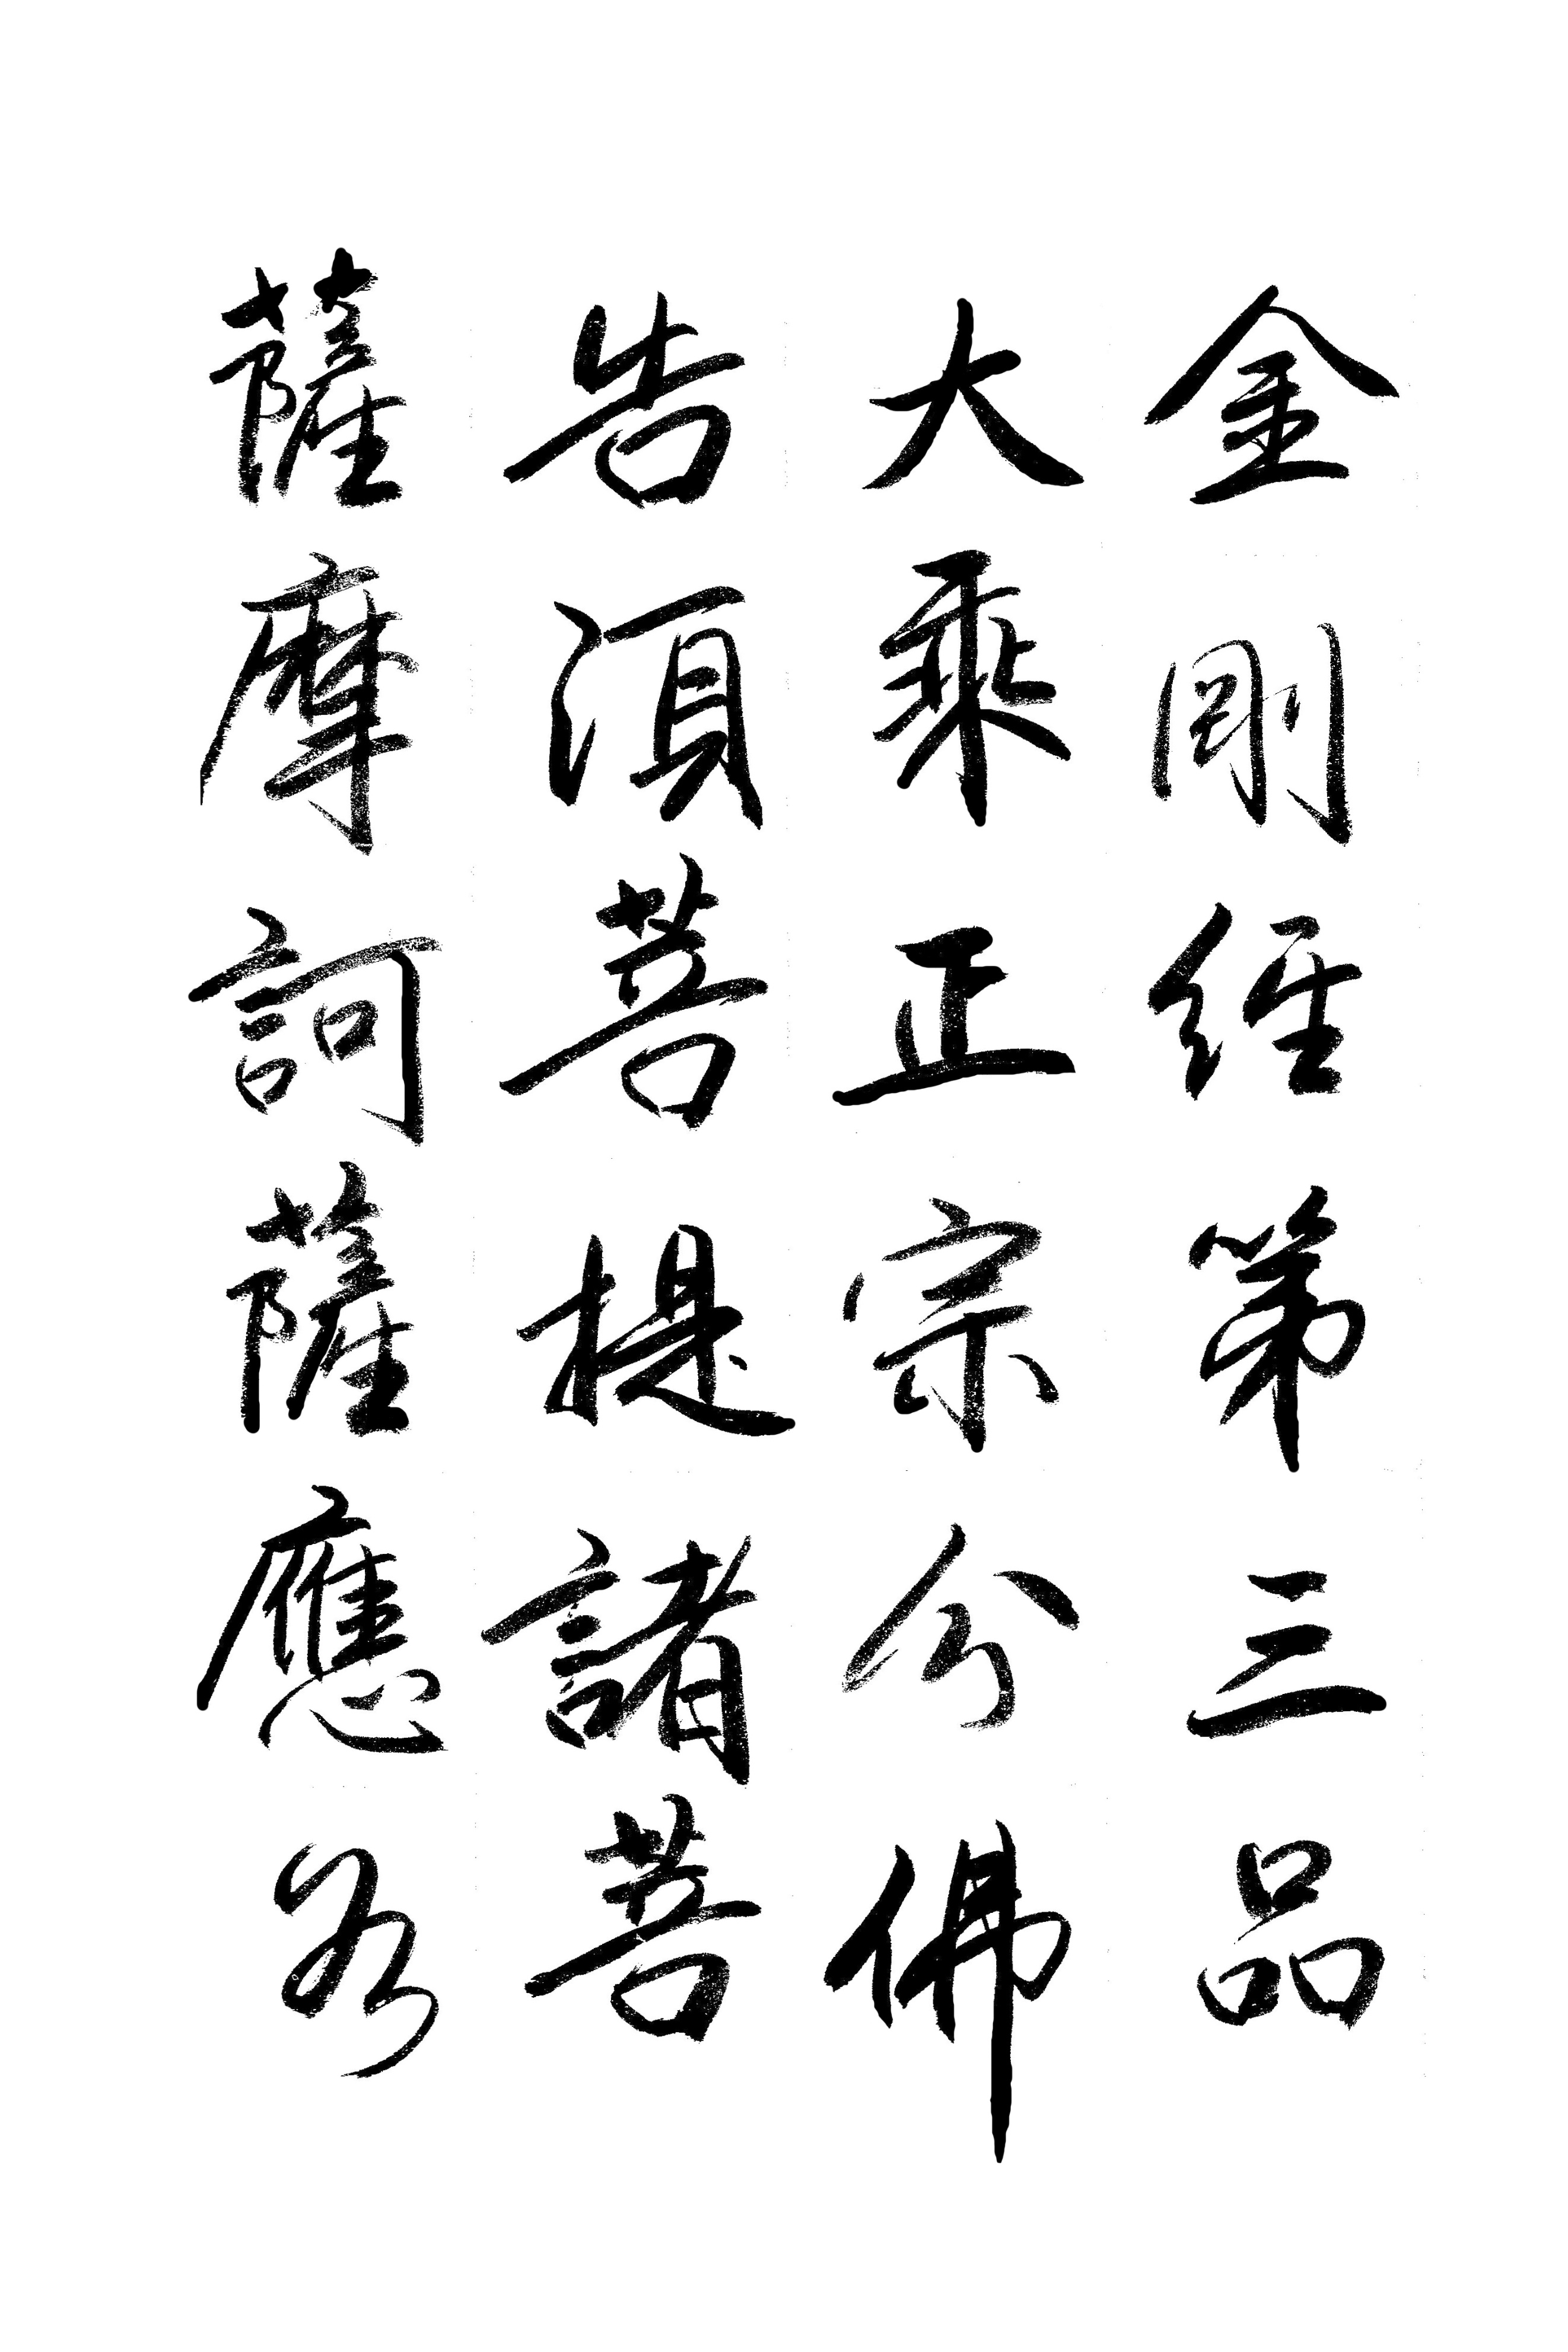 金剛經第三品
大乘正宗分佛
告須菩提諸菩
薩摩訶薩應如